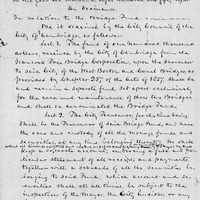 An Ordinance
In relation to the Bridge Fund
Be it ordained by the City Council of the
City of Cambridge as follows:
Sect. 1. The fund of one hundred thousand
dollars, received by the City of Cambridge from the
Hancock Free Bridge Corporation, upon the surrender
to said City of the West Boston and Canal Bridges, as
provided by Chapter 257 of the of 1857, shall be
and remain a separate fund, set apart exclusively
for the care and maintenance of those two Bridges
and shall be denominated the Bridge Fund.
Sect. 2. The City Treasurer, for the time being,
shall be the Treasurer of said Bridge Fund, and have
the care and custody of all the moneys, funds and
securities at any time belonging thereto. He shall
statement of all receipts, and payments,
together with a schedule of all the securities be-
longing to said Fund, which account and se-
curities shall at all times, be subject to the
inspection of the Mayor, the City Auditor or any